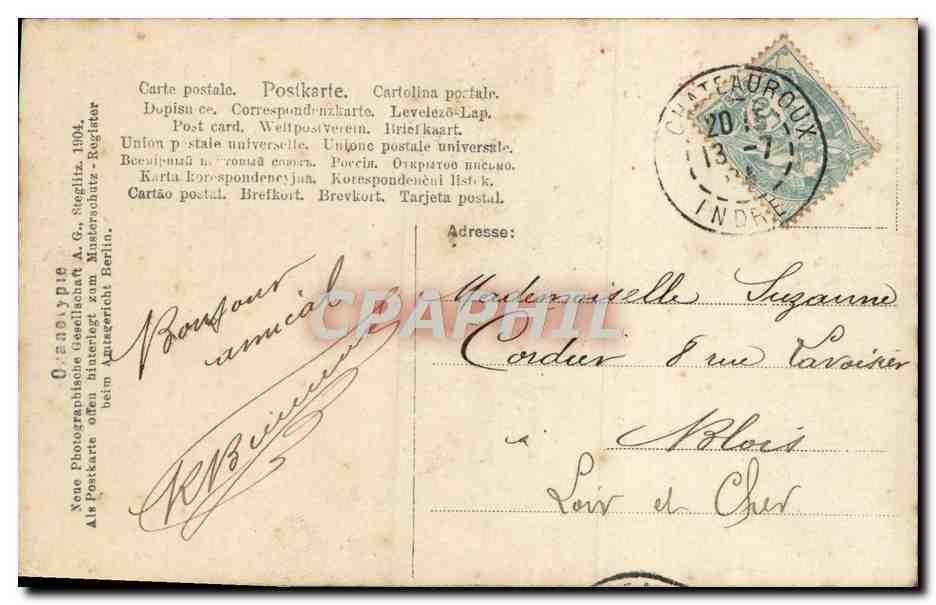 Carte postale. Postkarte. Cartolina postale.
Dopisnice. Correspondenzkarte. Levelezö-Lap.
Post card. Weltpostverein. Briefkaart.
Union postale universelle. Unione postale universale.
Всемірный почтовый союзъ. Россія. Открытое письмо.
Karta korespondencyjna. Korespondenční lístek.
Cartão postal. Brefkort. Brevkort. Tarjeta postal.
Neue Photographische Gesellschaft A. G., Steglitz 1904.
Als Postkarte offen hinterlegt zum Musterschutz-Register
beim Amtsgericht Berlin.
CHATEAUROUX
20
13 -7
INDRE
Adresse:
Bonjour
amical
CPAPHIL
Mademoiselle Suzanne
Cordier 8 rue Lavoisier
à Blois
Loir et Cher